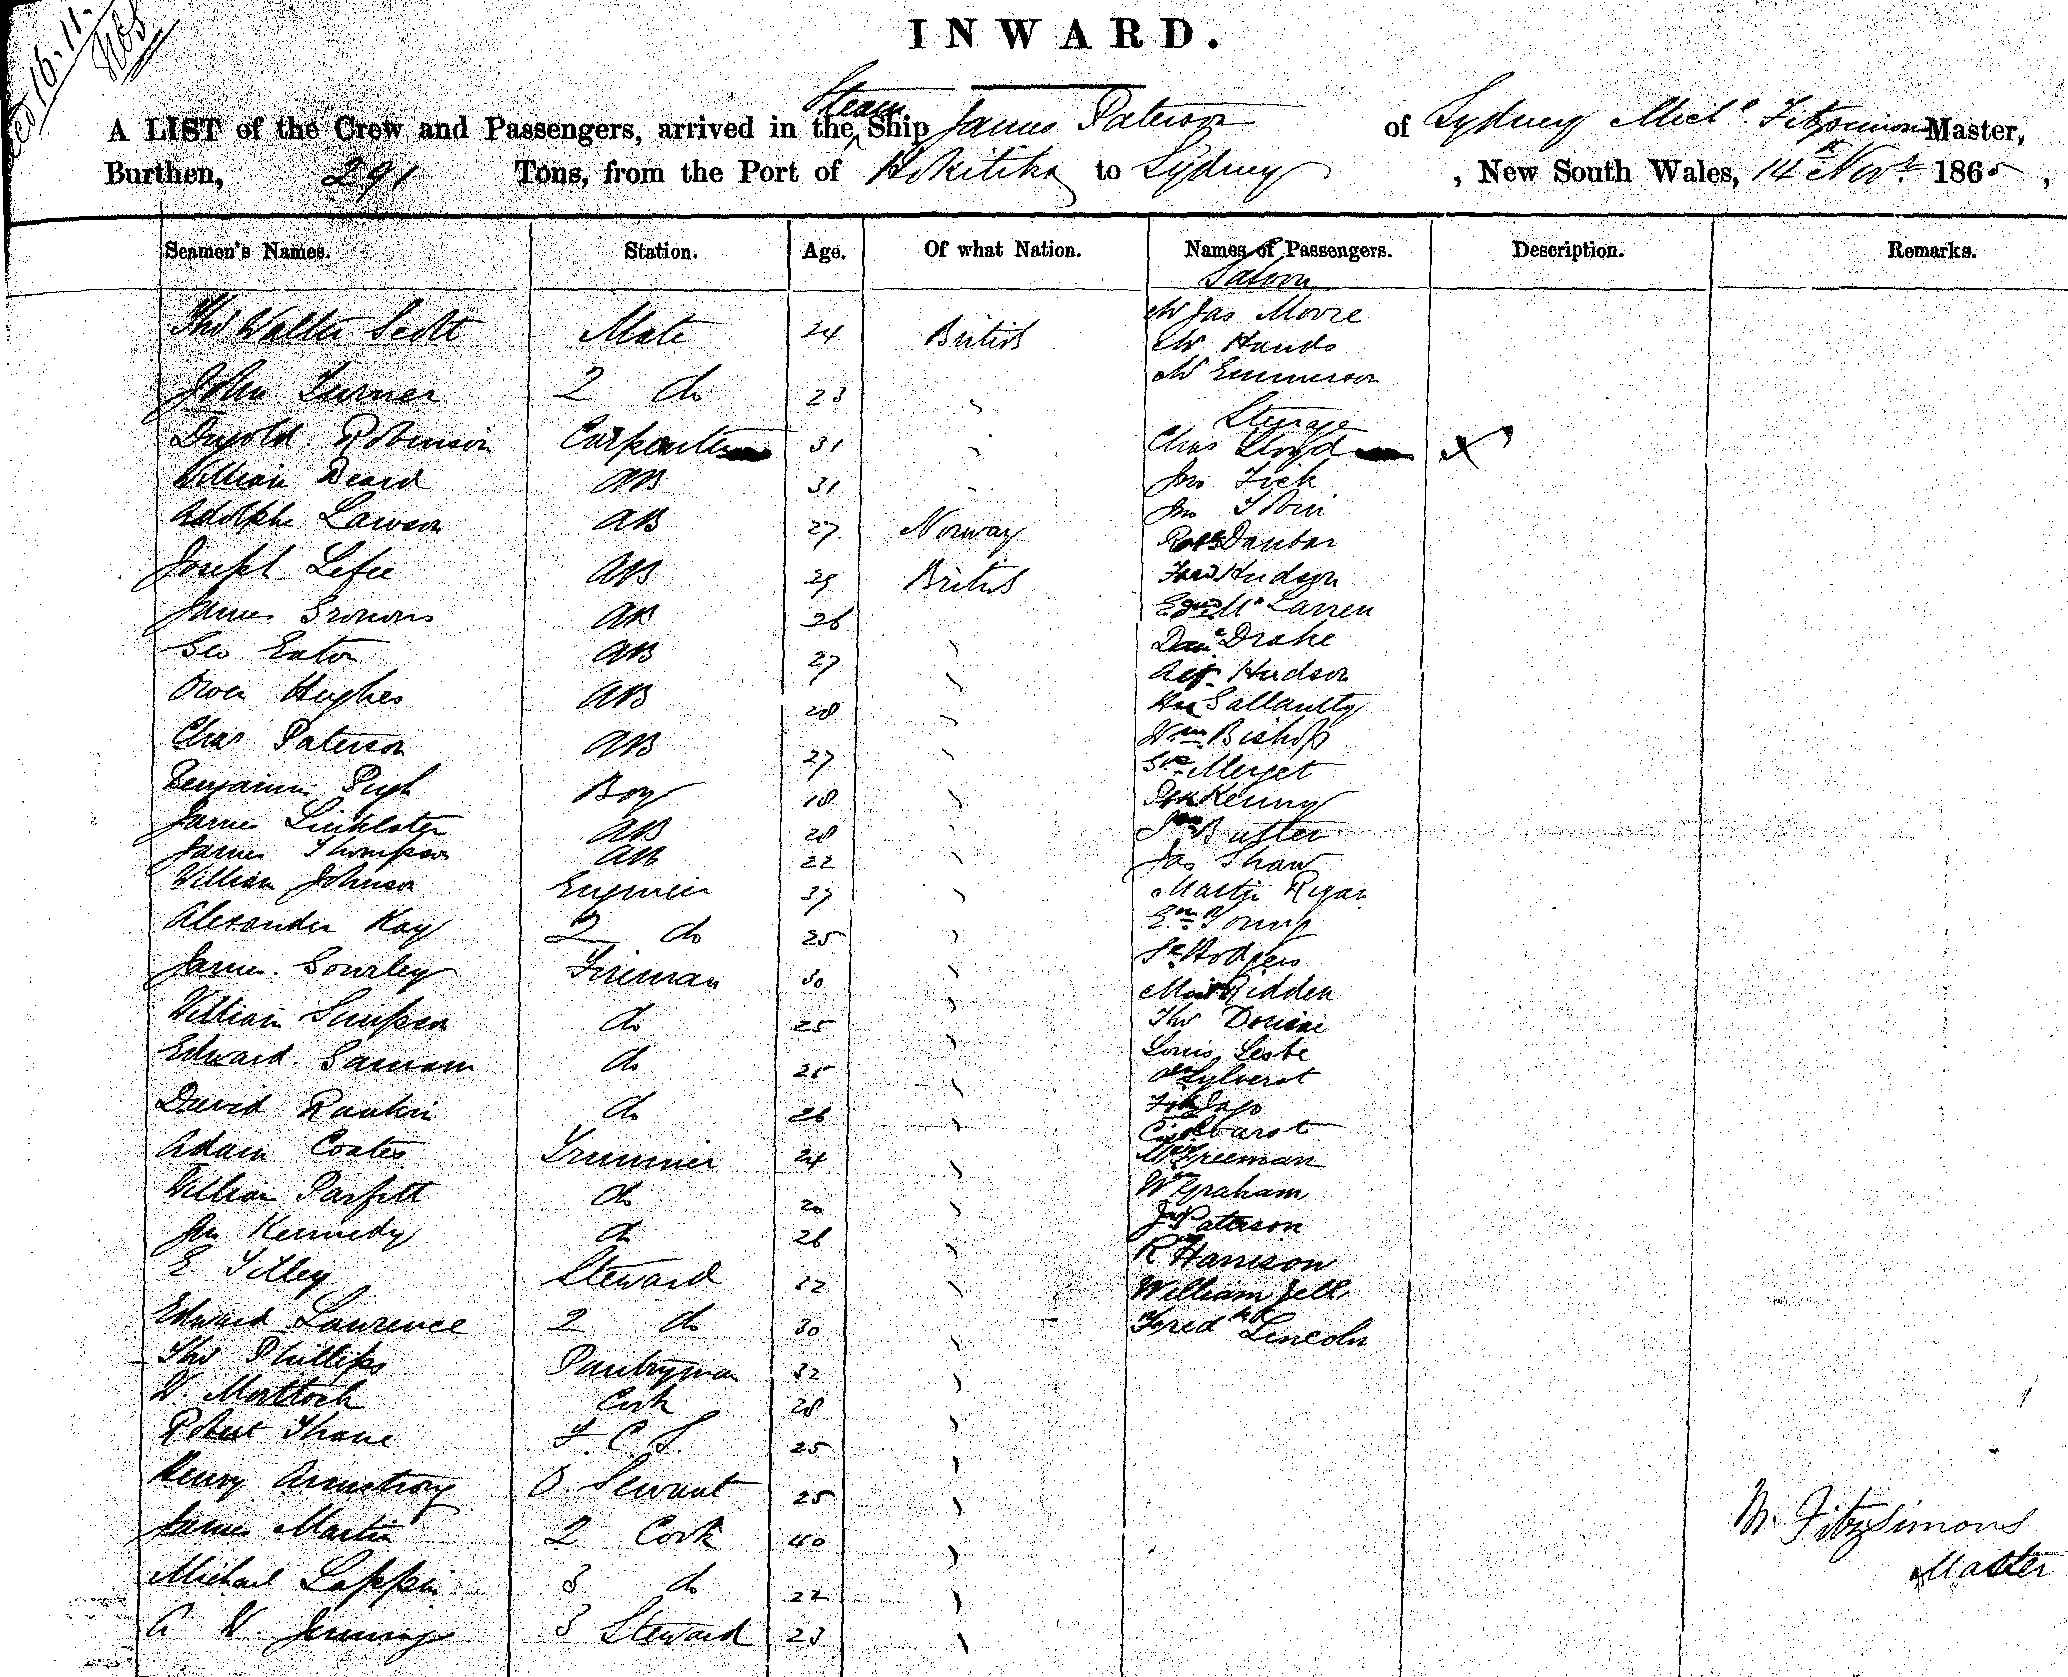 16.11.
INWARD.
A LIST of the Crew and Passengers, arrived in the Steam Ship James Paterson of Sydney Michl. Fitzsimons Master,
Burthen, 291 Tons, from the Port of Hokitika to Sydney , New South Wales, 14th Novr. 1865 ,
Seamen's Names. Station. Age. Of what Nation. Names of Passengers. Description. Remarks.
Saloon
Thos Walter Scott Mate 24 British Mr Jas Moore
Mr Hands
John Turner 2 do 23 " Mr Emmerson
Steerage
Robinson Carpenter 31 " Chas Lloyd X
William Beard AB 31 " Jno Fick
Adolphe Lawson AB 27 Norway Jno
Robt Dunbar
Joseph Lefee AB 29 British Fred Hudson
James AB 26 McLarren
Geo Eaton AB 27 " Drake
Owen Hughes AB 28 " Hudson
Chas Paterson AB 27 " Wm Bishop
Benjamin Pugh Boy 18 " Kenny
James Linklater AB 28 " Butler
James Thompson AB 22 " Jas Shaw
William Johnson Engineer 37 " Martin Regan
Alexander Kay 2 do 25 " Young
James Gourley Fireman 30 " Hodgers
Ridden
William Simpson do 25 " Thos
Edward do 25 " Louis
Sylverst
David Rankin do 26 "
Adam Coates Trimmer 24 " Freeman
William Parfitt do 20 " Wm Graham
Jno Kennedy do 26 " Paterson
E Tilley Steward 22 " R Harrison
William Jell
Edward Lawrence 2 do 30 " Fredk Lincoln
Thos Phillips Pantryman 32 "
W. Cook 28 "
Robert Thane F. C. S. 25 "
Henry Armstrong Servant 25 "
James Martin 2 Cook 40 "
M. Fitzsimons
Master
Michael Lappin 3 do 22 "
W. Jennings 3 Steward 23 "